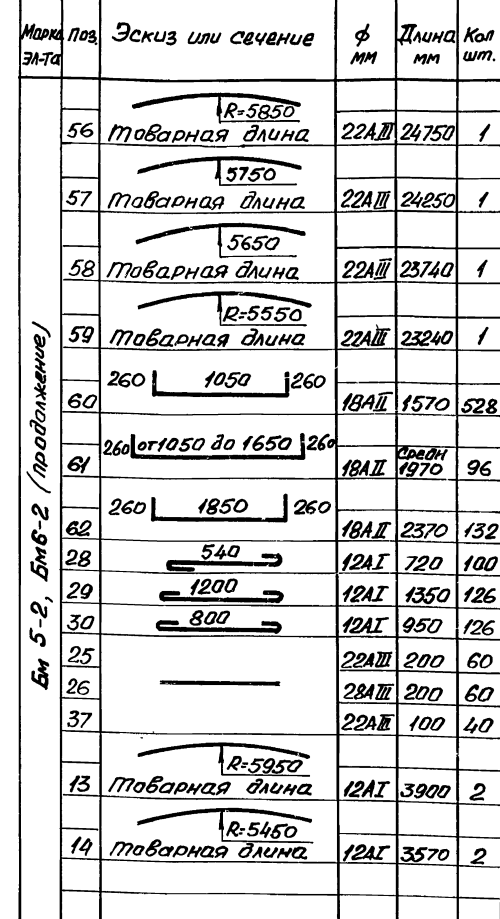 Марка Поз. Эскиз или сечение ф Длина Кол
эл-та мм мм шт.
Бм 5-2, Бм6-2 (продолжение)
R=5850
56 товарная длина 22АIII 24750 1
5750
57 товарная длина 22АIII 24250 1
5650
58 товарная длина 22АIII 23740 1
R=5550
59 товарная длина 22АIII 23240 1
260 1050 260
60 18АII 1570 528
260 от 1050 до 1650 260
средн
61 18АII 1970 96
260 1850 260
62 18АII 2370 132
28 540 12АI 720 100
29 1200 12АI 1350 126
30 800 12АI 950 126
25 22АIII 200 60
26 28АIII 200 60
37 22АIII 100 40
R=5950
13 товарная длина 12АI 3900 2
R=5450
14 товарная длина 12АI 3570 2